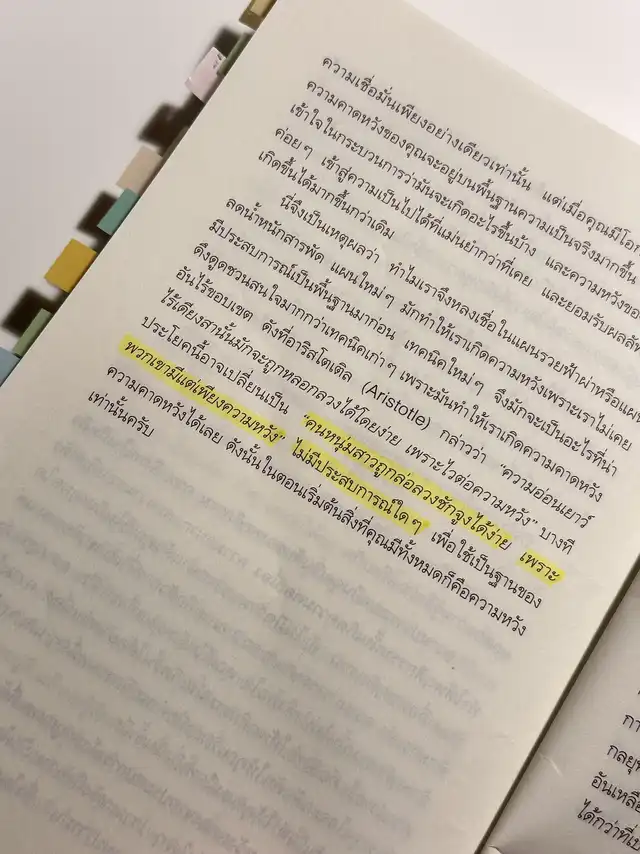 ความเชื่อมั่นเพียงอย่างเดียวเท่านั้น แต่เมื่อคุณมี
ความคาดหวังของคุณจะอยู่บนพื้นฐานความเป็นจริงมากขึ้น
เข้าใจในกระบวนการว่ามันจะเกิดอะไรขึ้นบ้าง และความหวังของ
ค่อยๆ เข้าสู่ความเป็นไปได้ที่แม่นยำกว่าที่เคย และยอมรับผลลัพ
เกิดขึ้นได้มากขึ้นกว่าเดิม
นี่จึงเป็นเหตุผลว่า ทำไมเราจึงหลงเชื่อในแผนรวยฟ้าผ่าหรือแผน
ลดน้ำหนักสารพัด แผนใหม่ๆ มักทำให้เราเกิดความหวังเพราะเราไม่เคย
มีประสบการณ์เป็นพื้นฐานมาก่อน เทคนิคใหม่ๆ จึงมักจะเป็นอะไรที่น่า
ดึงดูดชวนสนใจมากกว่าเทคนิคเก่าๆ เพราะมันทำให้เราเกิดความคาดหวัง
อันไร้ขอบเขต ดังที่อาริสโตเติล (Aristotle) กล่าวว่า "ความอ่อนเยาว์
ไร้เดียงสานั้นมักจะถูกหลอกลวงได้โดยง่าย เพราะไวต่อความหวัง" บางที
ประโยคนี้อาจเปลี่ยนเป็น "คนหนุ่มสาวถูกล่อลวงชักจูงได้ง่าย เพราะ
พวกเขามีแต่เพียงความหวัง" ไม่มีประสบการณ์ใดๆ เพื่อใช้เป็นฐานของ
ความคาดหวังได้เลย ดังนั้นในตอนเริ่มต้นสิ่งที่คุณมีทั้งหมดก็คือความหวัง
เท่านั้นครับ
กา
กลยุท
อันเหลือ
ได้กว่าที่เป